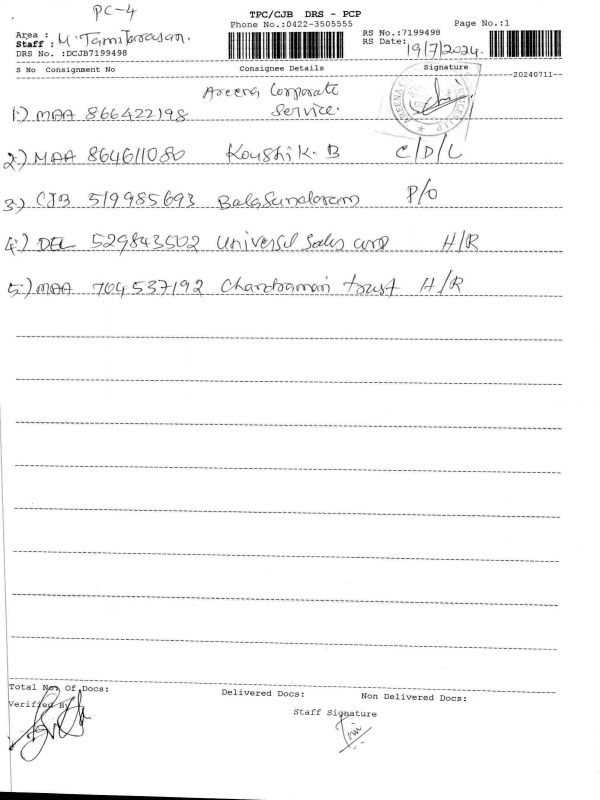 PC-4
TPC/CJB DRS - PCP
Phone No.:0422-3505555
Page No.:1
Area :
Staff : M. Tamilarasan.
DRS No. :DCJB7199498
RS No.:7199498
RS Date: 19/7/2024.
S No Consignment No Consignee Details Signature
20240711
1.) MAA 866422198 Areena Corporate Service.
2.) MAA 864611080 Koushik-B C/D/L
3.) CJB 519985693 Balasundaram P/O
4.) DEL 529843502 Universel Sales corp H/R
5.) MAA 704537192 Chandramari trust H/R
Total No. Of Docs: Delivered Docs: Non Delivered Docs:
Verified By
Staff Signature